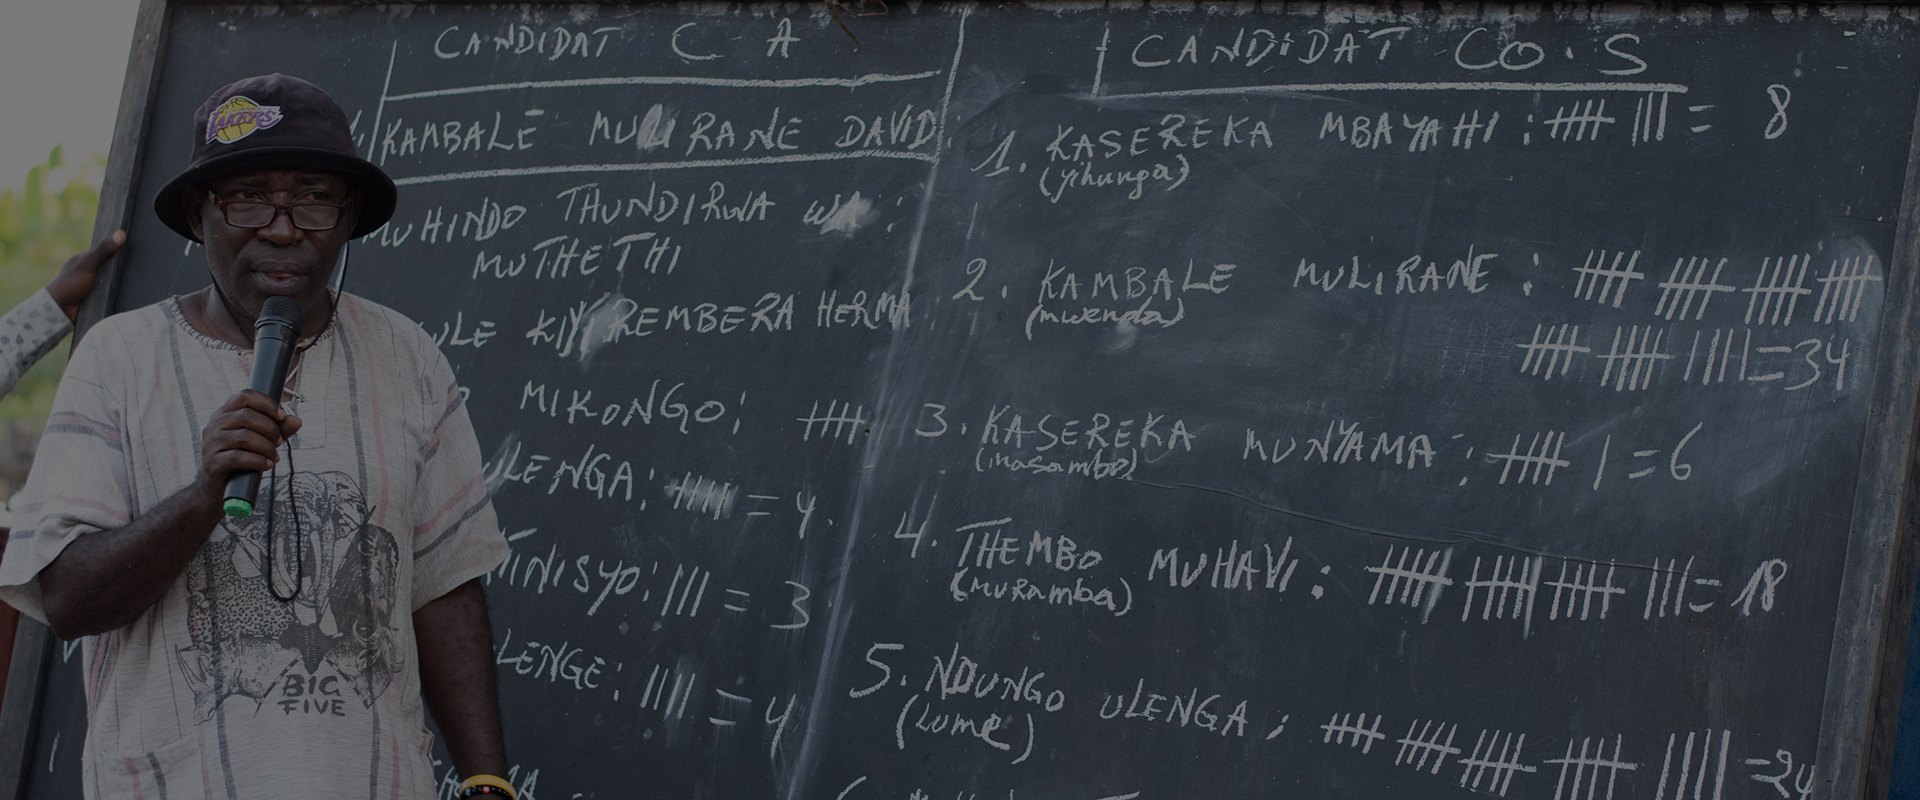 CANDIDAT C A
KAMBALE MULIRANE DAVID:
MUHINDO THUNDIRWA WA :
MUTHETHI
REMBERA HERMA
MIKONGO:
ULENGA: = 4.
= 3
LENGE: = 4
CANDIDAT CO.S
1. KASEREKA MBAYAHI : = 8
(yihunga)
2. KAMBALE MULIRANE :
(mwenda)
= 34
3. KASEREKA MUNYAMA : = 6
(masambo)
4. THEMBO MUHAVI : = 18
(muramba)
5. NDUNGO ULENGA : = 24
(Lume)
LAKERS
BIG
FIVE